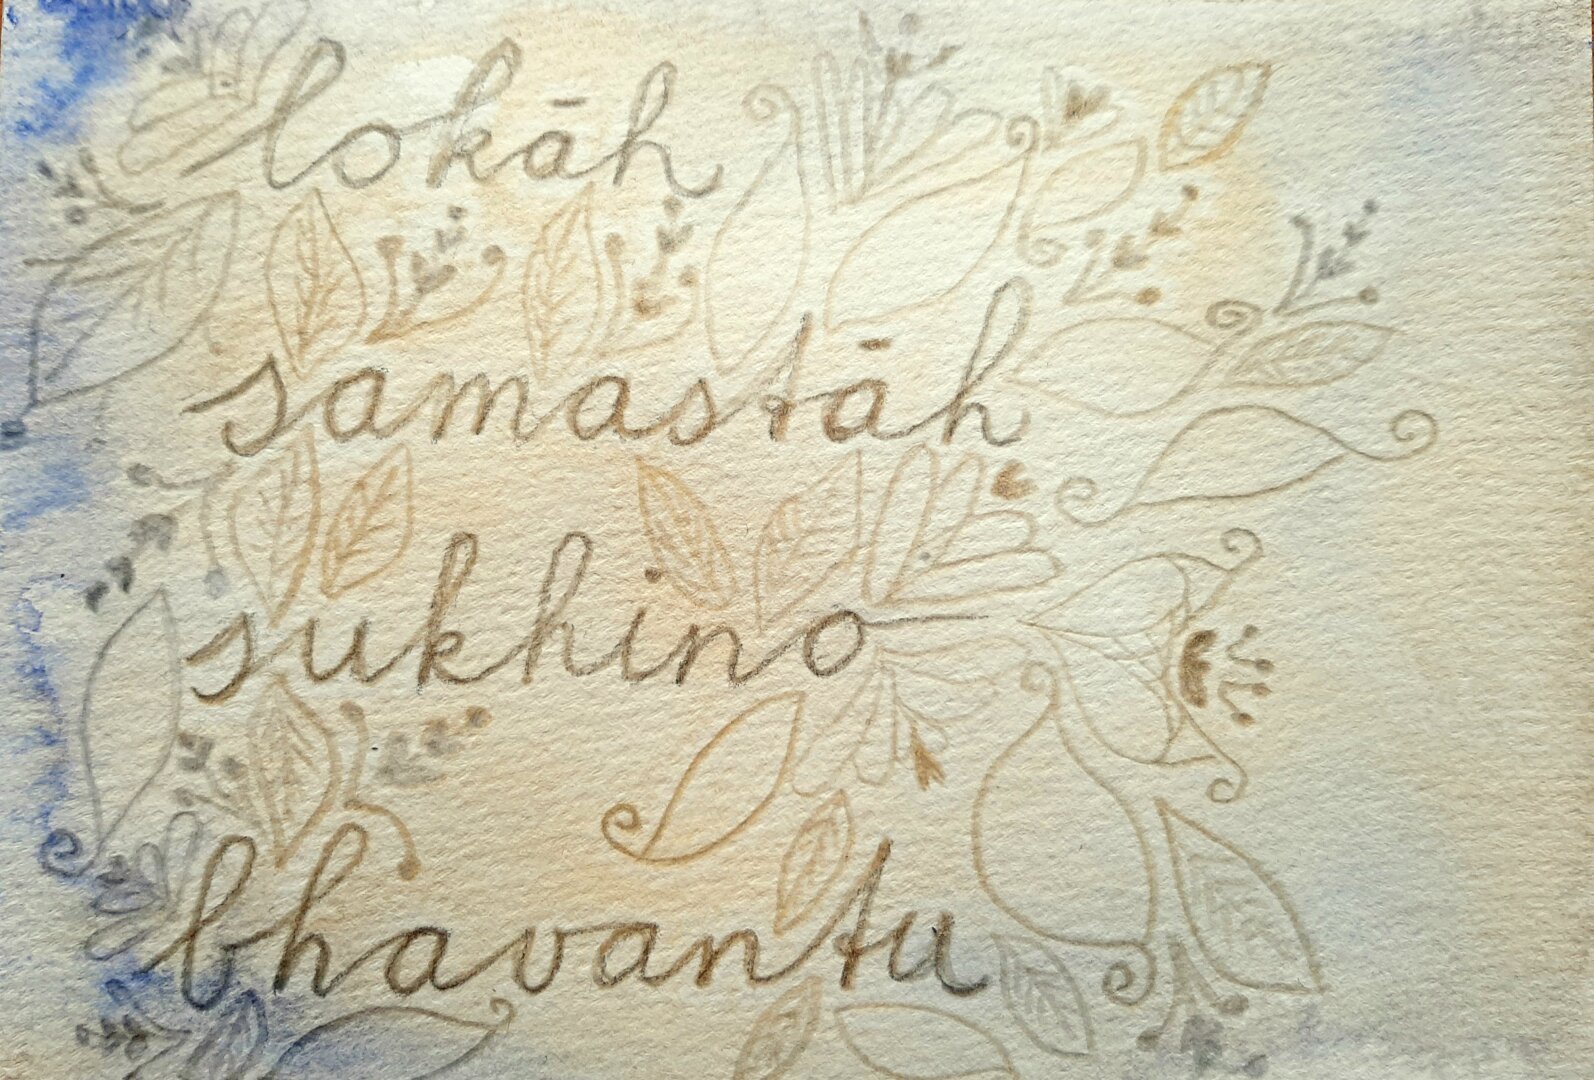 lokāh
samastāh
sukhino
bhavantu